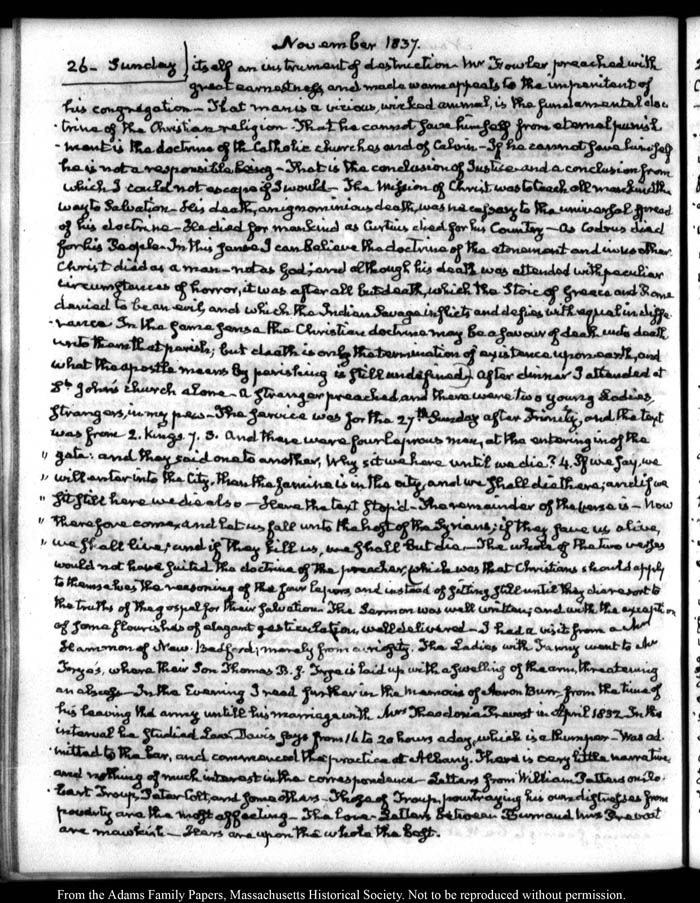 November 1837.
26 - Sunday } itself an instrument of destruction - Mr Fowler preached with
great earnestness and made warm appeals to the impenitent of
his congregation - That man is a vicious, wicked animal, is the fundamental doc
trine of the Christian religion - That he cannot save himself from eternal punish
-ment is the doctrine of the Catholic churches and of Calvin - If he cannot save himself
he is not a responsible being - That is the conclusion of Justice and a conclusion from
which I could not escape if I would - The Mission of Christ was to teach all mankind the
way to Salvation - His death, an ignominious death, was necessary to the universal spread
of his doctrine - He died for mankind as Curtius died for his Country - As Codrus died
for his People - In this sense I can believe the doctrine of the atonement and in no other
Christ died as a man - not as God; and although his death was attended with peculiar
circumstances of horror, it was after all but death, which the Stoic of Greece and Rome
denied to be an evil, and which the Indian Savage inflicts and defies with equal indiffe
-rence. In the same sense the Christian doctrine may be a savour of death unto death
unto them that perish; but death is only the termination of existence upon earth, and
what the apostle means by perishing is still undefined) After dinner I attended at
St. John's church alone - a stranger preached, and there were two young Ladies,
strangers, in my pew - The service was for the 27th Sunday after Trinity, and the text
was from 2. Kings 7. 3. And there were four leprous men, at the entering in of the
" gate: and they said one to another, Why sit we here until we die? 4. If we say, we
" will enter into the City, then the famine is in the city, and we shall die there; and if we
" sit still here we die also - Here the text stop'd - The remainder of the verse is - Now
" therefore come, and let us fall unto the host of the Syrians; if they save us alive,
" we shall live; and if they kill us, we shall but die. - The whole of the two verses
would not have suited the doctrine of the preacher, which was that Christians should apply
to themselves the reasoning of the four lepers, and instead of sitting still until they die resort to
the truths of the gospel for their salvation - The Sermon was well written, and with the exception
of some flourishes of elegant gesticulation, well delivered - I had a visit from a Mr
Seammon of New-Bedford; merely from curiosity. The Ladies with Fanny went to Mr
Frye's, where their Son Thomas B. J. Frye is laid up with a swelling of the arm, threatening
an abscess - In the Evening I read further in the Memoirs of Aaron Burr, from the time of
his leaving the army until his marriage with Mrs Theodosia Prevost in April 1832 In this
interval he studied Law - Davis says from 16 to 20 hours a day, which is a thumper - Was ad
mitted to the bar, and commenced the practice at Albany. There is very little narrative
and nothing of much interest in the correspondence - Letters from William Patterson, Ro
-bert Troup, Peter Colt, and some others - Those of Troup, pourtraying his own distresses from
poverty are the most affecting - The Love-Letters between Burr and Mrs Prevost
are mawkish - Hers are upon the whole the best.
From the Adams Family Papers, Massachusetts Historical Society. Not to be reproduced without permission.